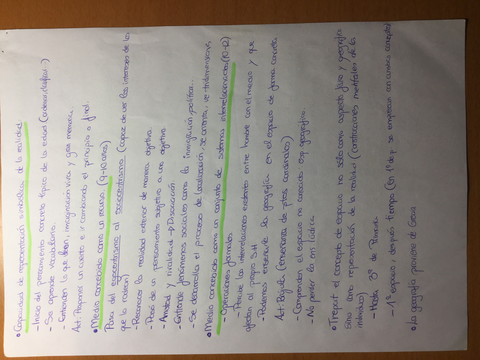 • Capacidad de representación simbólica de la realidad
- Inicio del pensamiento concreto típico de la escuela
- Se aprende vocabulario.
- Entienden lo que leen, imaginación viva y gran memoria.
Act. Proponer un cuento e ir cambiando el principio o final
• Medio concebido como un recurso (9-10 años)
Pasa del egocentrismo al sociocentrismo (capaz de ver los intereses de los
que lo rodean)
- Reconoce la realidad exterior de manera objetiva.
- Pasa de un pensamiento subjetivo a uno objetivo
- Amistad y rivalidad → Discusión
- Entiende fenómenos sociales como la inmigración, política...
- Se desarrolla el proceso de localización, se orienta, ve tridimensiones
• Medio concebido como un conjunto de sistemas interrelacionados (10-12)
- Operaciones formales
- Percibe las interrelaciones existentes entre hombre con el medio y que
afectan al propio S.H
- Podemos enseñarle la geografía en el espacio de forma concreta
Act. Brújula (enseñanza de ptos cardinales)
- Comprenden el espacio no conocido esp. geográfico.
- No perder la en lúdica
• Trepat el concepto de espacio no sólo como aspecto físico y geográfico
sino como representación de la realidad (construcciones mentales de los
individuos)
- Hasta 3º de Primaria
- 1º espacio, después tiempo (En 1º de p se empieza con ambos conceptos)
• La geografía proviene de Grecia